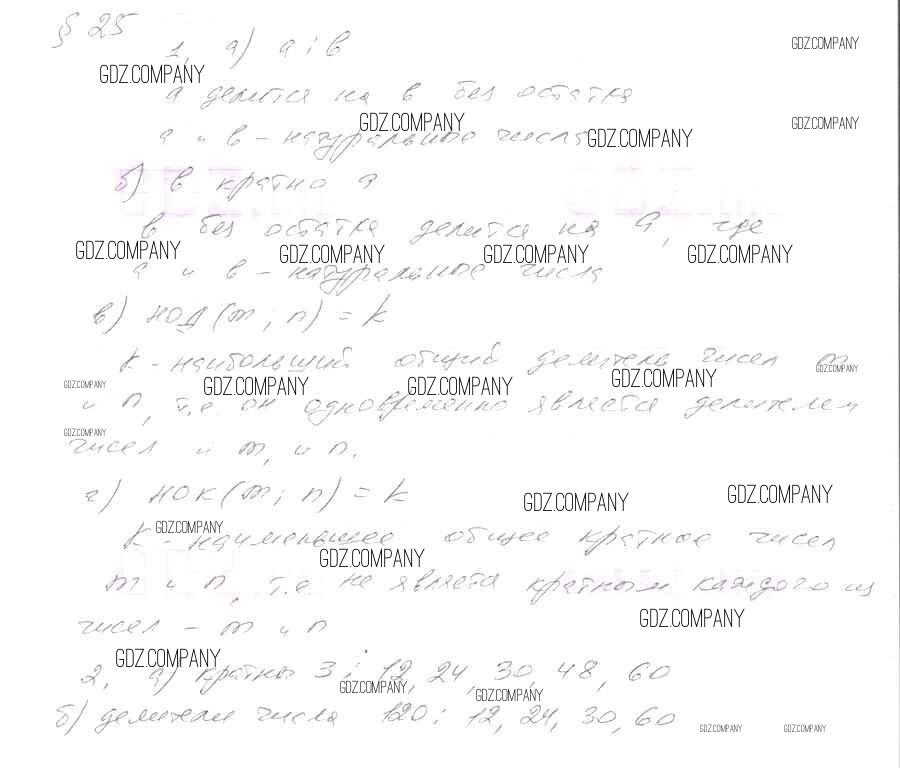 § 25
1, а) а ⋮ в
GDZ.COMPANY
GDZ.COMPANY
а делится на в без остатка
GDZ.COMPANY
GDZ.COMPANY
GDZ.COMPANY
а и в - натуральное числа
б) в кратно а
в без остатка делится на а, где
GDZ.COMPANY GDZ.COMPANY GDZ.COMPANY GDZ.COMPANY
а и в - натуральное числа
в) НОД (m; n) = k
k - наибольший общий делитель чисел m
GDZ.COMPANY
GDZ.COMPANY GDZ.COMPANY GDZ.COMPANY GDZ.COMPANY
и n, т.е. он одновременно является делителем
GDZ.COMPANY
чисел и m, и n.
г) НОК (m; n) = k
GDZ.COMPANY GDZ.COMPANY
GDZ.COMPANY
k - наименьшее общее кратное чисел
GDZ.COMPANY
m и n, т.е. не является кратным каждого из
GDZ.COMPANY
чисел - m и n
GDZ.COMPANY
2, а) кратны 3: 12, 24, 30, 48, 60
GDZ.COMPANY GDZ.COMPANY
б) делители числа 120: 12, 24, 30, 60
GDZ.COMPANY GDZ.COMPANY